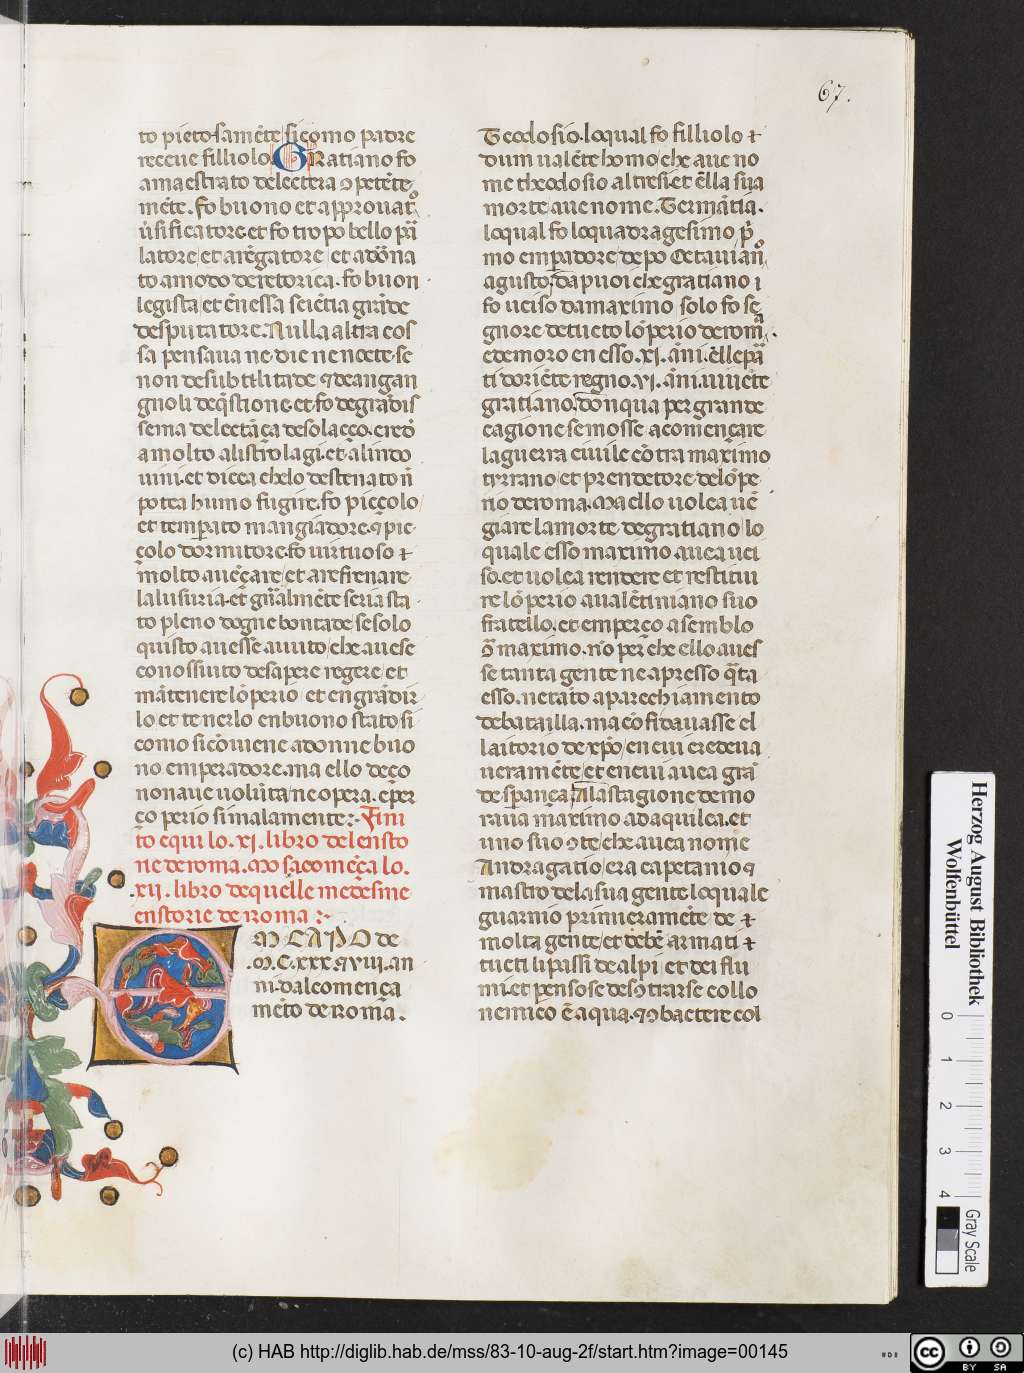 67.
to pietosamēte sicomo padre
receue filliolo. GRatiano fo
amaestrato de lectera ꝯpetēte
mēte. fo buono et approuatᵒ
ūsificatore. et fo tropo bello pā
latore et arēgatore et adōna
to amodo de retorica. fo buon
legista et ēnessa sciētia grāde
desputatore. Nulla altra cos
sa pensaua ne die ne nocte se
non de subtilitade ꝫ de angan
gnoli de q̄stione. et fo de grādis
sema delectāça de solacço. credō
a molto ali strolagi. et al indo
uini. et dicea chelo destenato nō
potea humo fugire. fo piccolo
et temperato mangiadore. ꝫ pic
colo dormitore. fo uirtuoso ⁊
molto auēçare et arefrenare
la lusuria. et gn̄almēte seria sta
to pleno dogne bontade se solo
quisto auesse auuto che auese
conossuito de sapere regere et
mātenere lō perio et engrādir
lo et tenerlo en buono stato si
como sicōuiene adonne buo
no emperadore. ma ello de ço
non aue uolūta ne opera. ēper
ço perio si malamente:-Fini
to equi lo .xi. libro de lensto
ne de roma. Mo sacomēça lo.
.xii. libro de quelle medesme
enstorie de Roma :-
EMCANDO de
.M.C.xxx. ꝫ viii. an
ni dal comença
mēto de Romā.
Teodosio. loqual fo filliolo ⁊
dum ualēte homo che aue no
me theodosio altresi. et ēlla sua
morte aue nome. Germātia.
loqual fo lo quadragesimo p̄
mo emp̄adore depo Octauianᵒ
agusto, da puoi che gratiano i
fo uciso da maximo solo fo se
gnore de tucto lō perio de romᵃ.
e demoro en esso .xi. āni. ēlle pā
ti doriēte regno .vi. āni. uiuēte
gratiano. dōnqua per grande
cagione se mosse a començare
la guerra ciuile cōtra maximo
tyrrano et prendetore de lō pe
rio de roma. Ma ello uolea uē
giare la morte de gratiano lo
quale esso maximo auea uci
so. et uolea rendere et restitui
re lō perio a ualētiniano suo
fratello. et emperço asemblo
ꝯ maximo. nō per che ello aues
se tanta gente ne apresso q̄ta
esso. ne tāto aparechiamento
de batailla. ma cōfidauasse el
laitorio de xp̄o en cui credeua
ueramēte et en cui auea grā
de sperança. A la stagione demo
raua maximo ad aquilea. et
uno suo ꝯte che auea nome
Andragatio era capetanio ꝫ
mastro de la sua gente loquale
guarnio primieramēte de ⁊
molta gente et debē armati ⁊
tucti li passi de alpi et dei flu
mi. et pensose de sꝯtrarse collo
nemico ē aqua. ꝫ ꝯbactere col
Herzog August Bibliothek
Wolfenbüttel
0 1 2 3 4
Gray Scale
(c) HAB http://diglib.hab.de/mss/83-10-aug-2f/start.htm?image=00145
cc BY SA